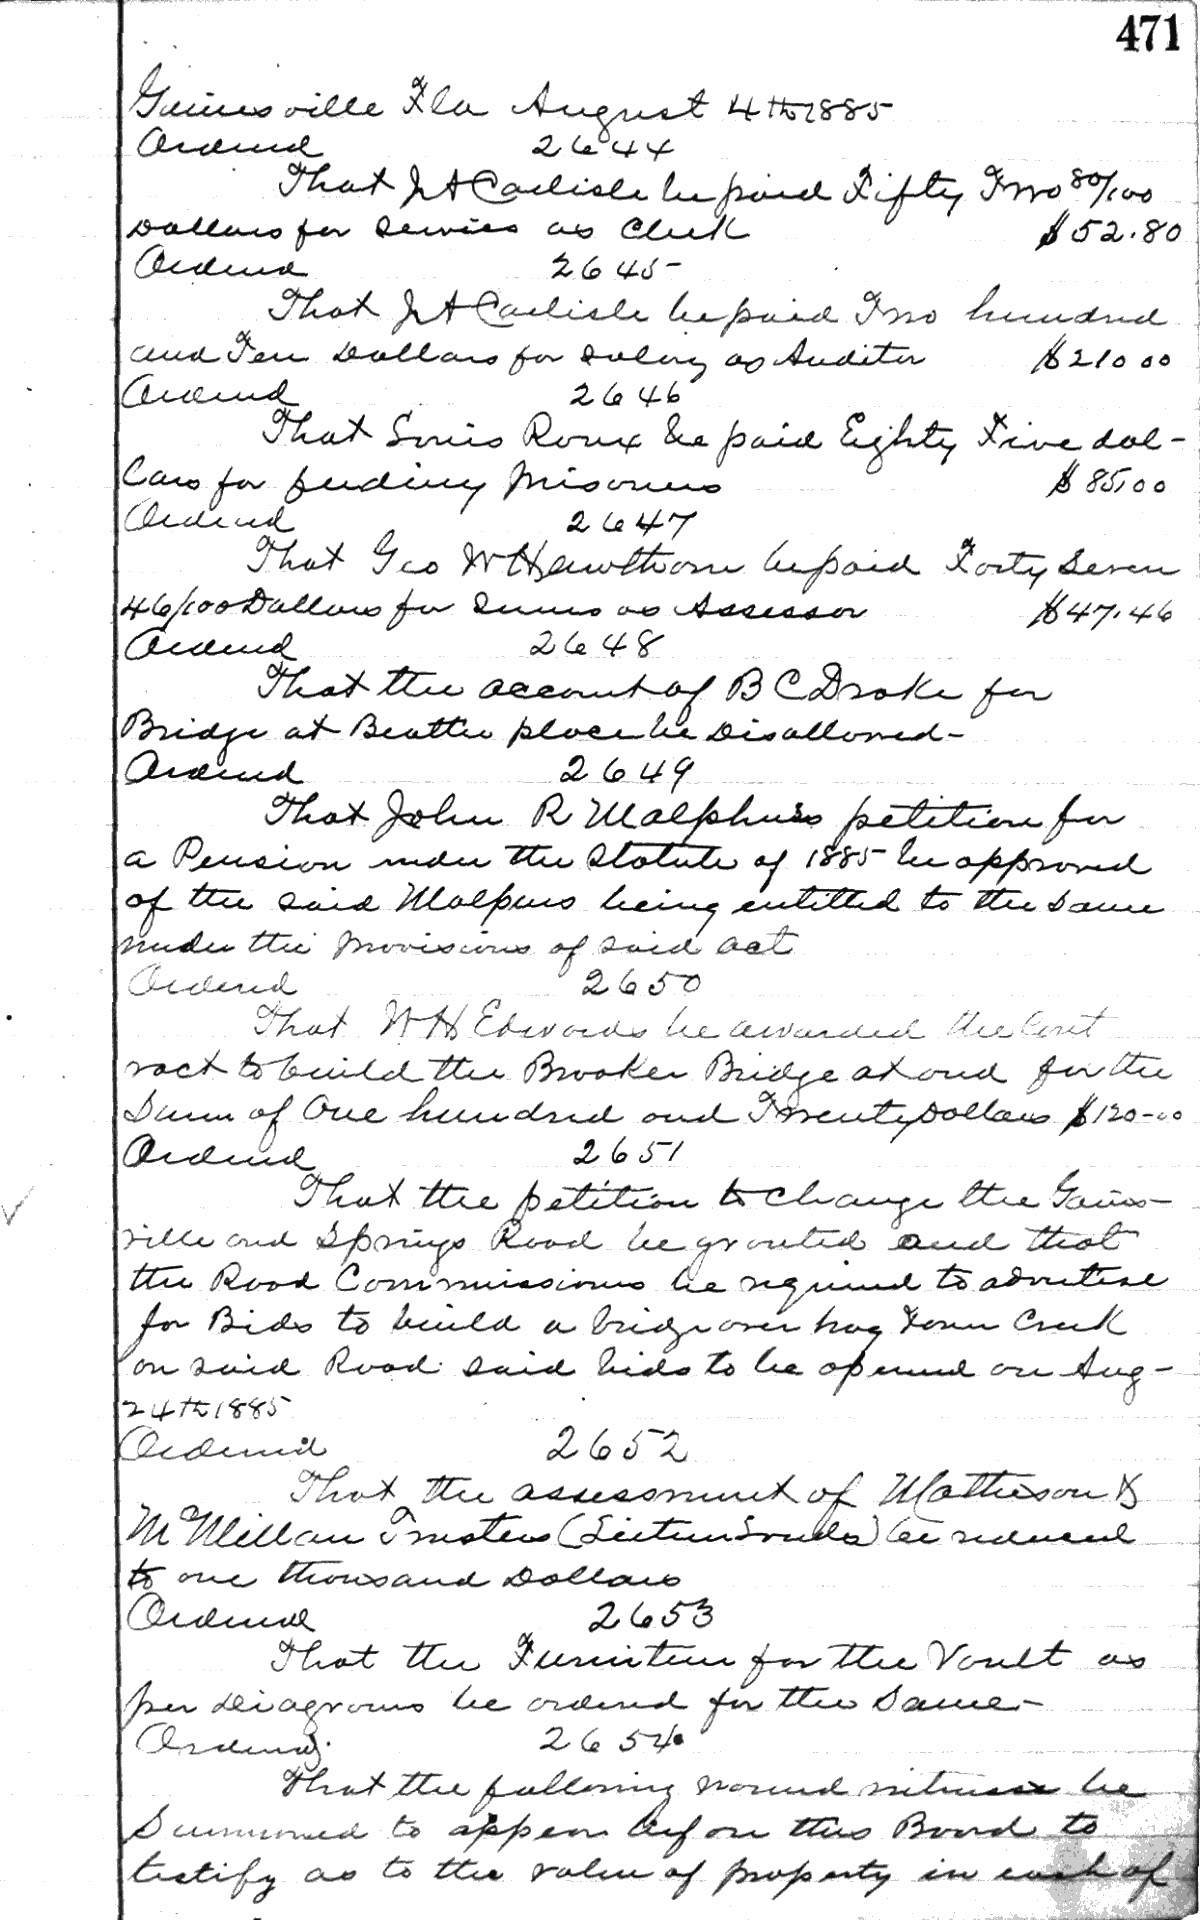 471
Gainesville Fla August 4th 1885
Ordered 2644
That J A Carlisle be paid Fifty Two 80/100
Dollars for Services as Clerk $52.80
Ordered 2645-
That J A Carlisle be paid Two hundred
and Ten Dollars for Salary as Auditor $210 00
Ordered 2646
That Louis Roux be paid Eighty Five dol-
lars for feeding Prisoners $85,00
Ordered 2647
That Geo W Hawthorn be paid Forty Seven
46/100 Dollars for Services as Assessor $47.46
Ordered 2648
That the account of B C Drake for
Bridge at Beattie place be Disallowed-
Ordered 2649
That John R Malphurs petition for
a Pension under the Statute of 1885 be approved
of the said Malpurs being entitled to the Same
under the provisions of said act
Ordered 2650
That W H Edwards be awarded the Cont
ract to build the Brooker Bridge at and for the
Sum of One hundred and Twenty Dollars $120-00
Ordered 2651
That the petition to change the Gains-
ville and Springs Road be granted and that
the Road Commissioners be required to advertise
for Bids to build a bridge over hog Town Creek
on said Road. said bids to be opened on Aug-
24th 1885
Ordered 2652
That the assessment of Matheson &
McMillan Trustees be reduced
to one thousand Dollars
Ordered 2653
That the Furniture for the Vault as
per Diagrams be ordered for the Same-
Ordered. 2654.
That the following named witness be
Summoned to appear before this Board to
testify as to the value of property in each of